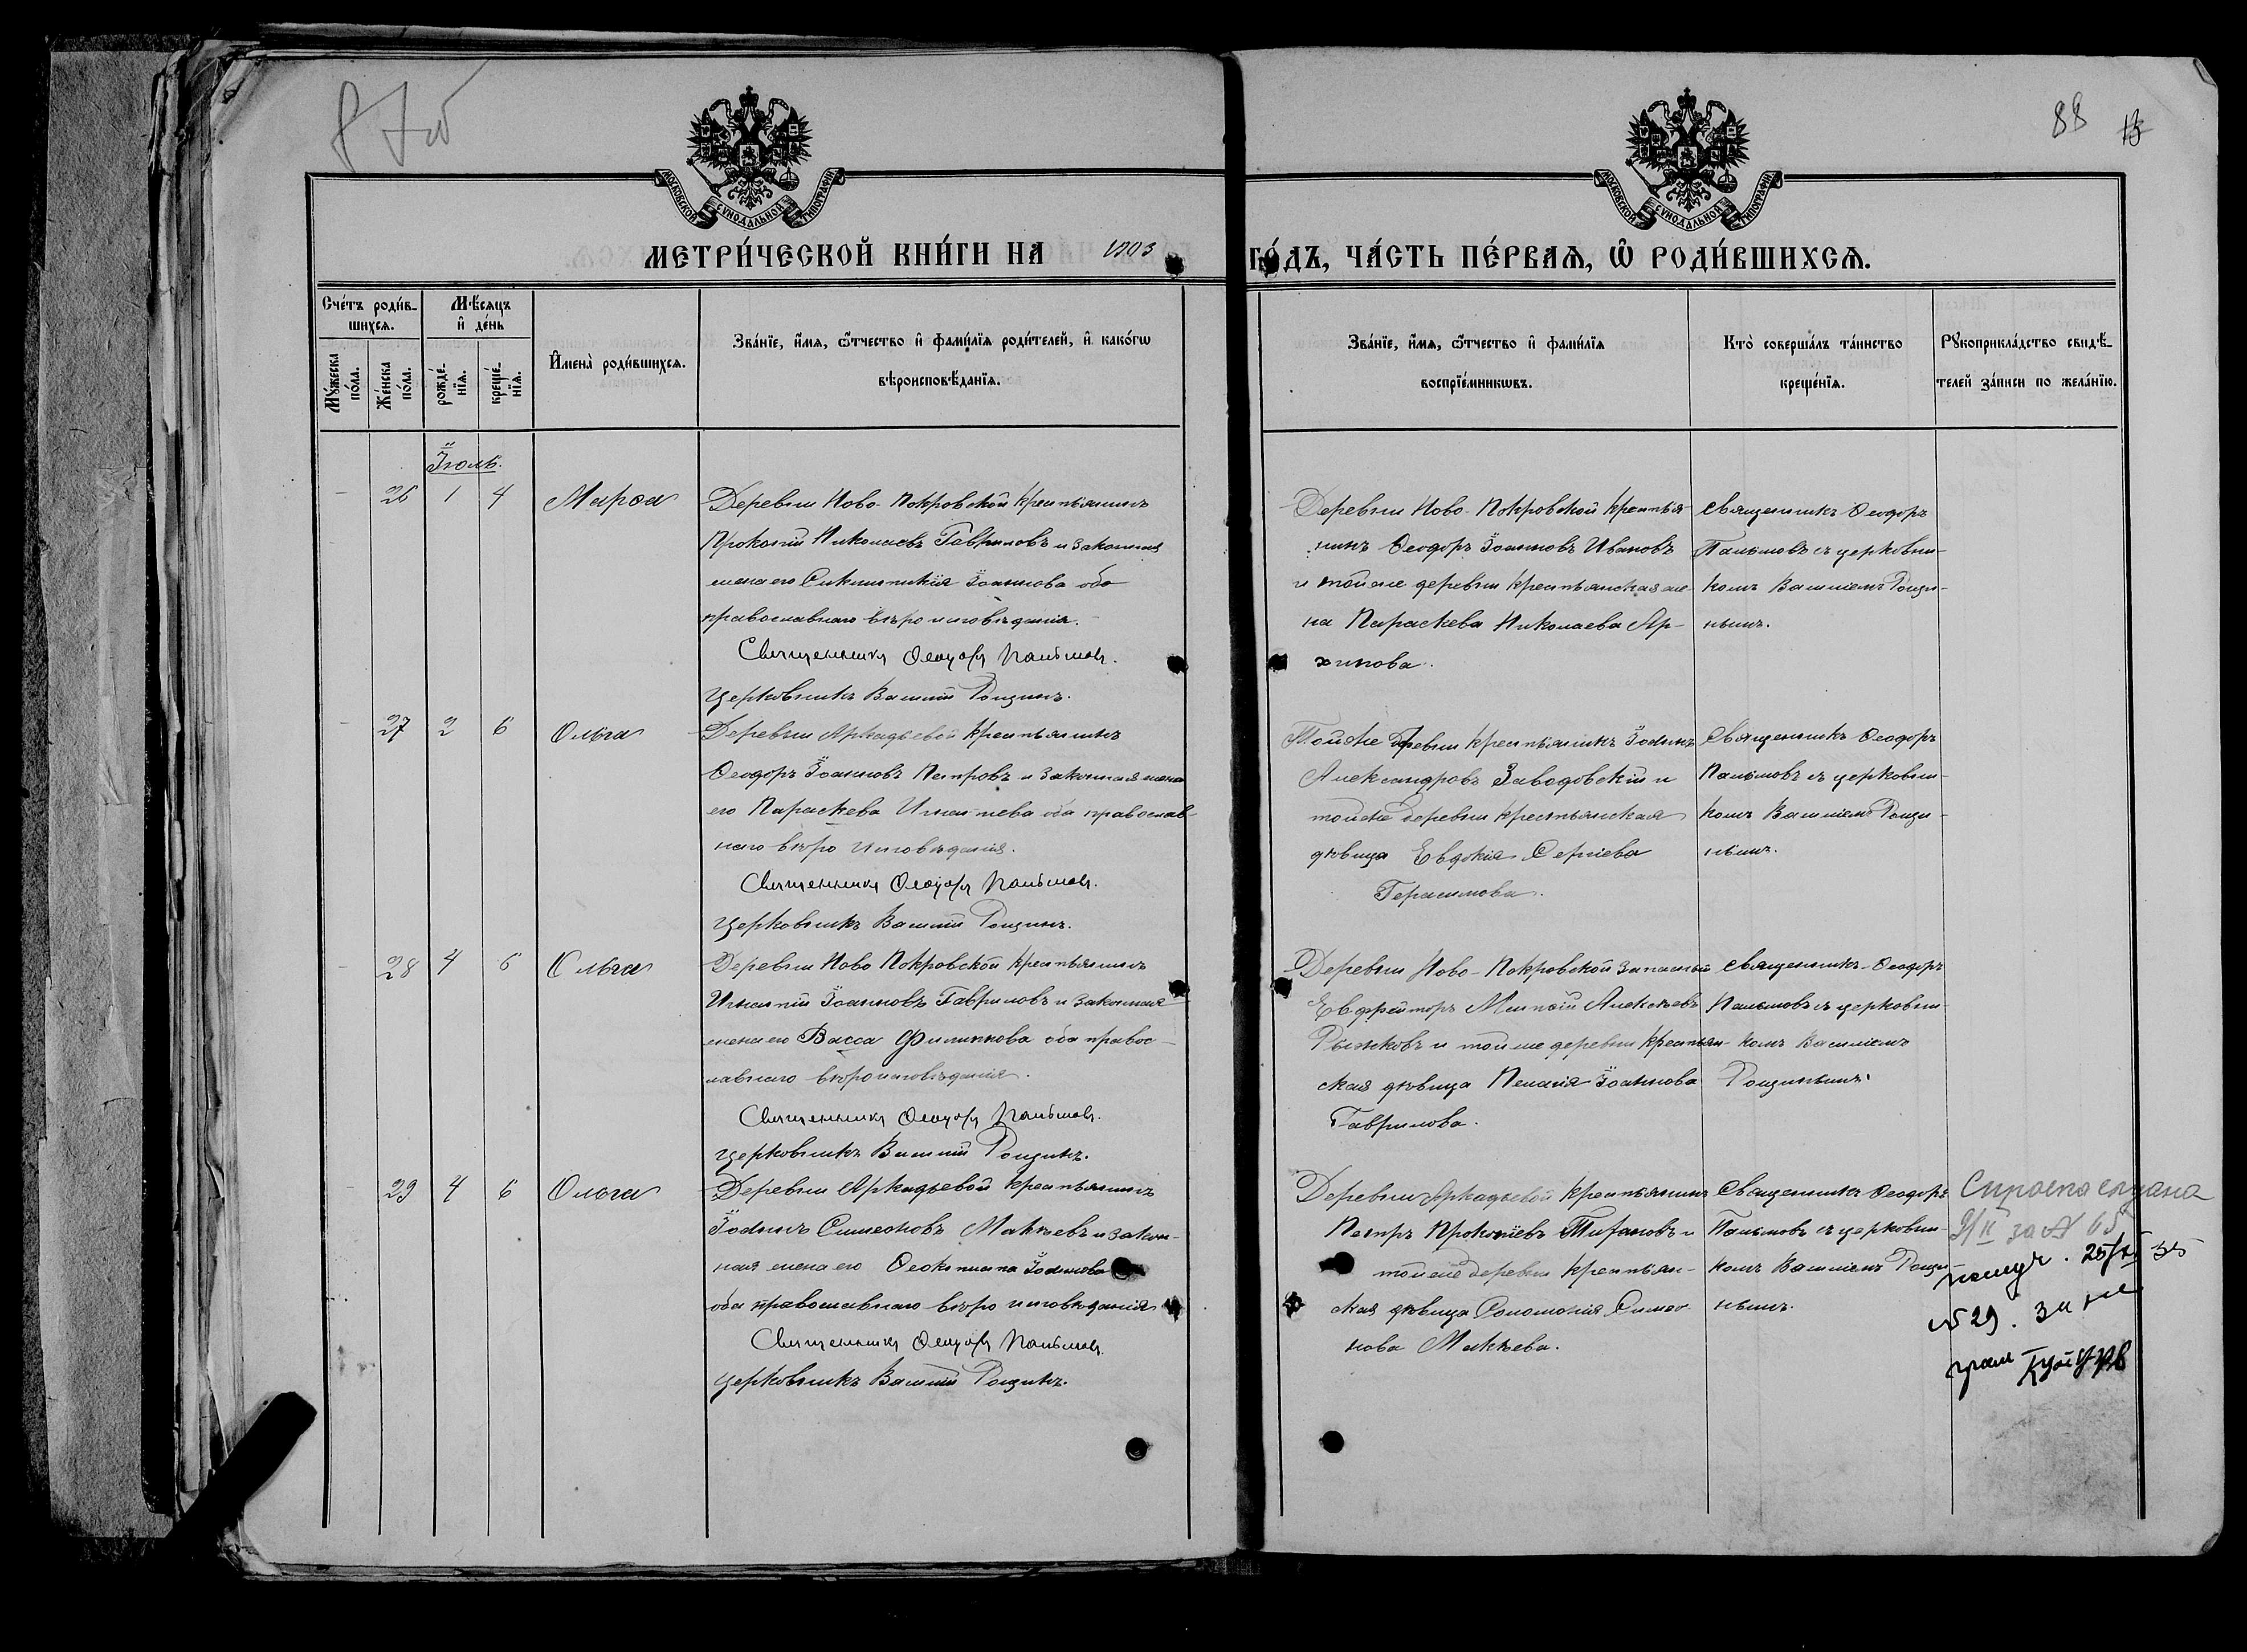 88
МОСКОВСКОЙ СУНОДАЛЬНОЙ ТИПОГРАФІИ
МОСКОВСКОЙ СУНОДАЛЬНОЙ ТИПОГРАФІИ
МЕТРИ́ЧЕСКОЙ КНИ́ГИ НА 1903
ГО́ДЪ, ЧА́СТЬ ПЕ́РВАѦ, Ѽ РОДИ́ВШИХСѦ.
Сче́тъ роди́в-
шихсѧ.
Мꙋ́жеска
по́ла.
Же́нска
по́ла.
Мѣ́сяцъ
и҆ де́нь
рожде́-
нїѧ.
креще́-
нїѧ.
И҆мена̀ роди́вшихсѧ.
Зва́нїе, и҆́мѧ, ѻ҆́тчество и҆ фами́лїѧ роди́телей, и҆ како́гѡ
вѣроисповѣ́данїѧ.
Зва́нїе, и҆́мѧ, ѻ҆́тчество и҆ фами́лїѧ
воспрїе́мникѡвъ.
Кто̀ соверша́лъ та́инство
креще́нїѧ.
Рꙋкоприкла́дство свидѣ́-
телей за́писи по жела́нїю.
Іюль.
- 26 1 4 Марѳа
Деревни Ново-Покровской крестьянинъ
Прокопій Николаевъ Гавриловъ и законная
жена его Синклитикія Іоаннова оба
православнаго вѣроисповѣданія.
Священникъ Ѳеодоръ Пальмовъ.
Церковникъ Василій Рощинъ.
Деревни Ново-Покровской крестья-
нинъ Ѳеодоръ Іоанновъ Ивановъ
и тойже деревни крестьянская же-
на Параскева Николаева Ар-
хипова.
Священникъ Ѳеодоръ
Пальмовъ съ церковни-
комъ Василіемъ Рощи-
нымъ.
- 27 2 6 Ольга
Деревни Аркадьевой крестьянинъ
Ѳеодоръ Іоанновъ Петровъ и законная жена
его Параскева Игнатіева оба православ-
наго вѣроисповѣданія.
Священникъ Ѳеодоръ Пальмовъ.
Церковникъ Василій Рощинъ.
Тойже деревни крестьянинъ Іоаннъ
Александровъ Заводовскій и
тойже деревни крестьянская
дѣвица Евдокія Сергіева
Герасимова.
Священникъ Ѳеодоръ
Пальмовъ съ церковни-
комъ Василіемъ Рощи-
нымъ.
- 28 4 6 Ольга
Деревни Ново Покровской крестьянинъ
Игнатій Іоанновъ Гавриловъ и законная
жена его Васса Филиппова оба правос-
лавнаго вѣроисповѣданія.
Священникъ Ѳеодоръ Пальмовъ.
Церковникъ Василій Рощинъ.
Деревни Ново-Покровской запасный
Евфрейторъ Алексѣевъ
Рыжковъ и тойже деревни крестьян-
ская дѣвица Пелагія Іоаннова
Гаврилова.
Священникъ Ѳеодоръ
Пальмовъ съ церковни-
комъ Василіемъ
Рощинымъ.
- 29 4 6 Ольга
Деревни Аркадьевой крестьянинъ
Іоаннъ Симеоновъ Макѣевъ и закон-
ная жена его Ѳеоктиста Іоаннова
оба православнаго вѣроисповѣданія
Священникъ Ѳеодоръ Пальмовъ.
Церковникъ Василій Рощинъ.
Деревни Аркадьевой крестьянинъ
Петръ Прокопіевъ и
тойже деревни крестьян-
ская дѣвица Соломонія Симео-
нова Макѣева.
Священникъ Ѳеодоръ
Пальмовъ съ церковни-
комъ Василіемъ Рощи-
нымъ.
за № 65
№ 29. за не
грам